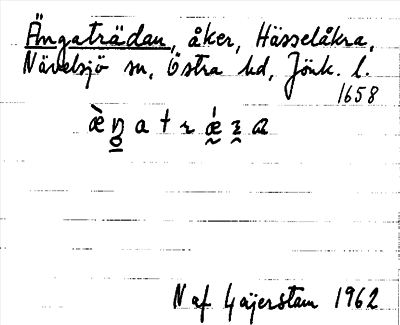 Ängaträdan, åker, Hässelåkra,
Nävelsjö sn, Östra hd, Jönk. l.
1658
N af Gajerstam 1962